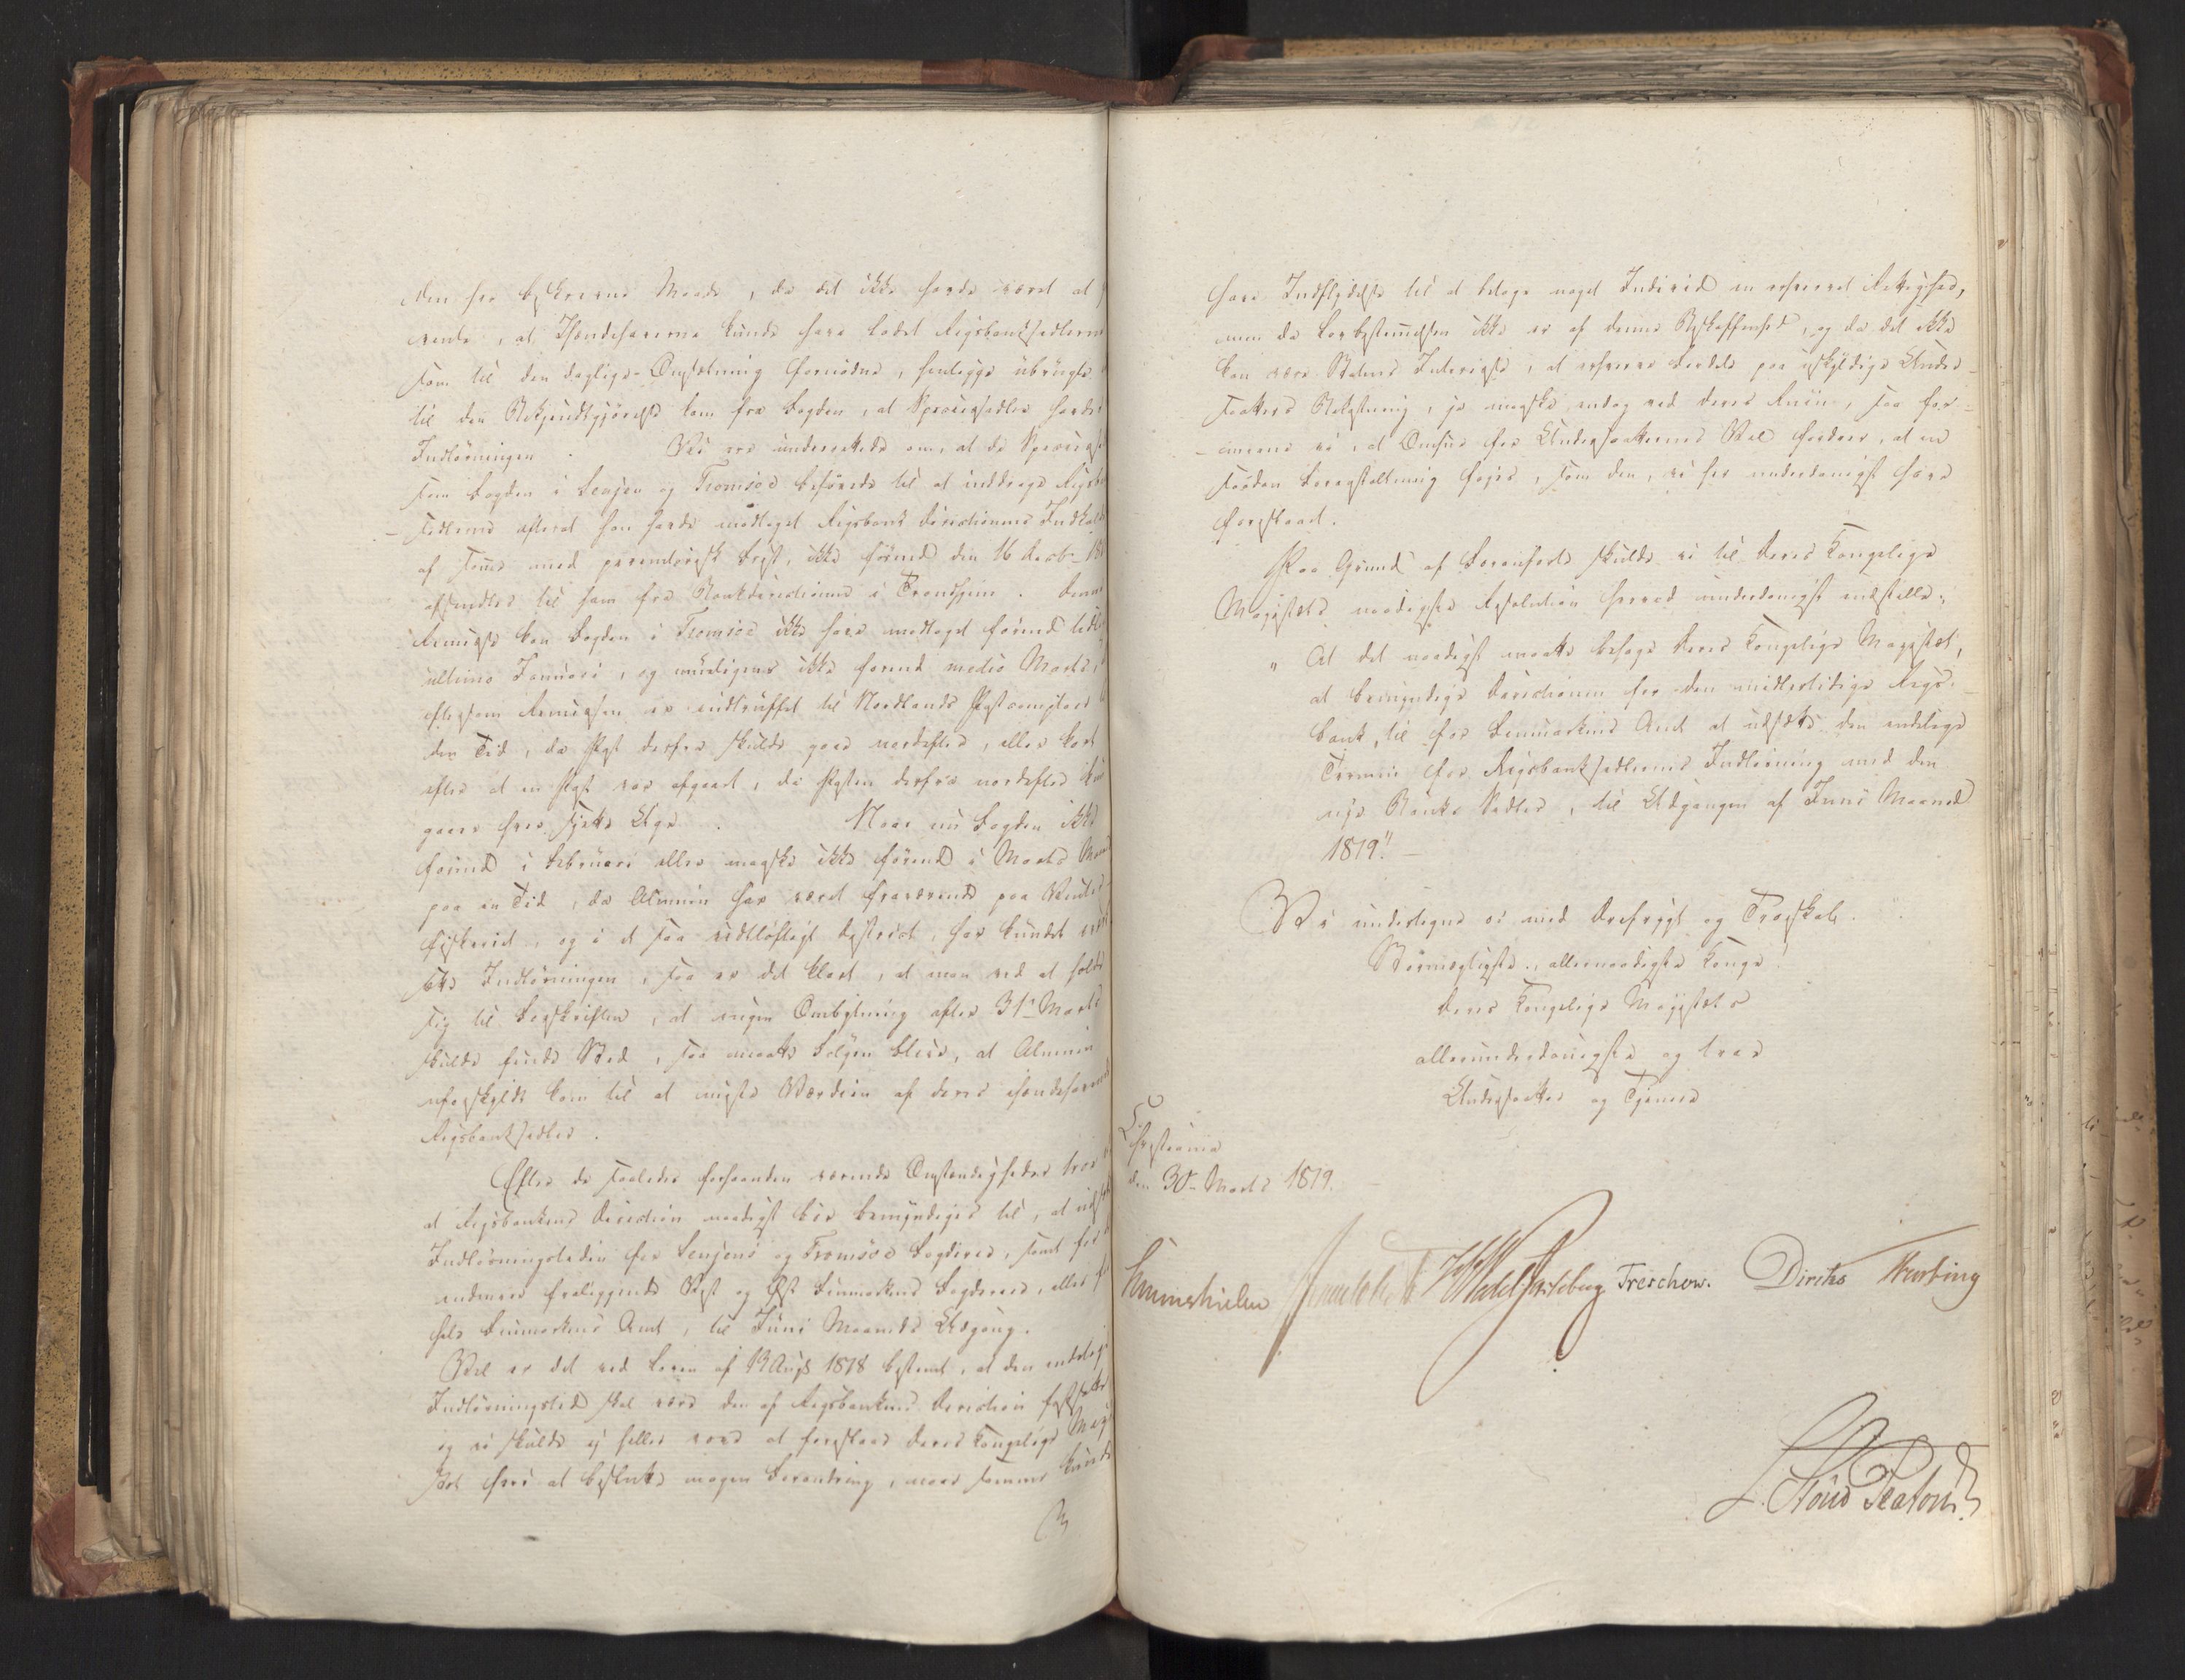 den her beskrevne Maade, da det ikke havde været at
vente, at Ihændehaverne kunde have ladet Rigsbanksedlerne
som til den daglige Omsætning fornødne, henligge ubrugte
til den Bekjendtgjørelse kom fra Fogden, at Speciessedler havdes
Indløsningen. Vi ere underrettede om, at de Species
som Fogden i Senjen og Tromsøe behøvede til at inddrage Rigsbank
sedlerne efterat han havde modtaget Rigsbank Directionens Indkaldelse
af samme med peremtorisk Frist, ikke førend den 16 Decbr. 18
afsendtes til ham fra Bankdirectionen i Trondhjem. Denne
Remisse kan Fogden i Tromsøe ikke have modtaget førend
ultimo Januari, og mueligens ikke førend medio Marts,
eftersom Remissen er indtruffet til Nordlands Postcomptoir
den Tid, da Post derfra skulde gaae nordefter, eller kort
efter at en Post var afgaaet, da Posten derfra nordefter kun
gaaer hver sjette Uge. Naar nu Fogden ikke
førend i Februari eller maaske ikke førend i Marts
paa en Tid, da Almuen har været fraværende paa Vinter
fiskeriet, og i et saa vidtløftigt District, har kundet
sætte Indløsningen, saa er det klart, at man ved at holde
sig til Forskriften, at ingen Ombytning efter 31te Marts
skulde finde Sted, saa maatte Følgen blive, at Almuen
uforskyldt kom til at miste Værdien af deres ihændehavende
Rigsbanksedler.
Efter de saaledes forhaanden værende Omstændigheder troe vi
at Rigsbankens Direction naadigst bør bemyndiges til, at
Indløsningstiden for Senjens og Tromsøe Fogderie, samt for
endmere fraliggende Vest og Øst Finmarkens Fogderier, eller
hele Finmarkens Amt, til Juni Maaneds Udgang.
Vel er det ved Loven af 13 Augs 1818 bestemt, at den endelige
Indløsningstid skal være den af Rigsbankens Direction fastsatte
og vi skulde ej heller vove at foreslaae Deres Kongelige Maje
stæt heri at beslutte nogen Forandring, naar samme kunde
have Indflydelse til at betage noget Individ en erhvervet Rettighed,
men da Lovbestemmelsen ikke er af denne Beskaffenhed, og da det ikke
kan være Statens Interesse, at erhverve Fordele paa uskyldige Under-
saatters Bekostning, ja maaske endog ved deres Ruin, saa for-
-mene vi, at Omhue for Undersaatternes Vel fordrer, at en
saadan Foranstaltning føjes, som den, vi her underdanigst have
foreslaaet.
Paa Grund af Foranførte skulde vi til Deres Kongelige
Majestæts naadigste Resolution herved underdanigst indstille:
" At det naadigst maatte behage Deres Kongelige Majestæt,
at bemyndige Directionen for den midlertidige Rigs-
bank, til for Finmarkens Amt at udsætte den endelige
Termin for Rigsbanksedlernes Indløsning med den
nye Banks Sedler, til Udgangen af Juni Maaned
1819." —
Vi undertegne os med Ærefrygt og Troskab.
Stormægtigste, allernaadigste Konge!
Deres Kongelige Majestæts
allerunderdanigste og troe
Undersaatter og Tjenere
Christiania
den 30te Marts 1819.
Sommerhielm Wedel Jarlsberg Treschow. Diriks